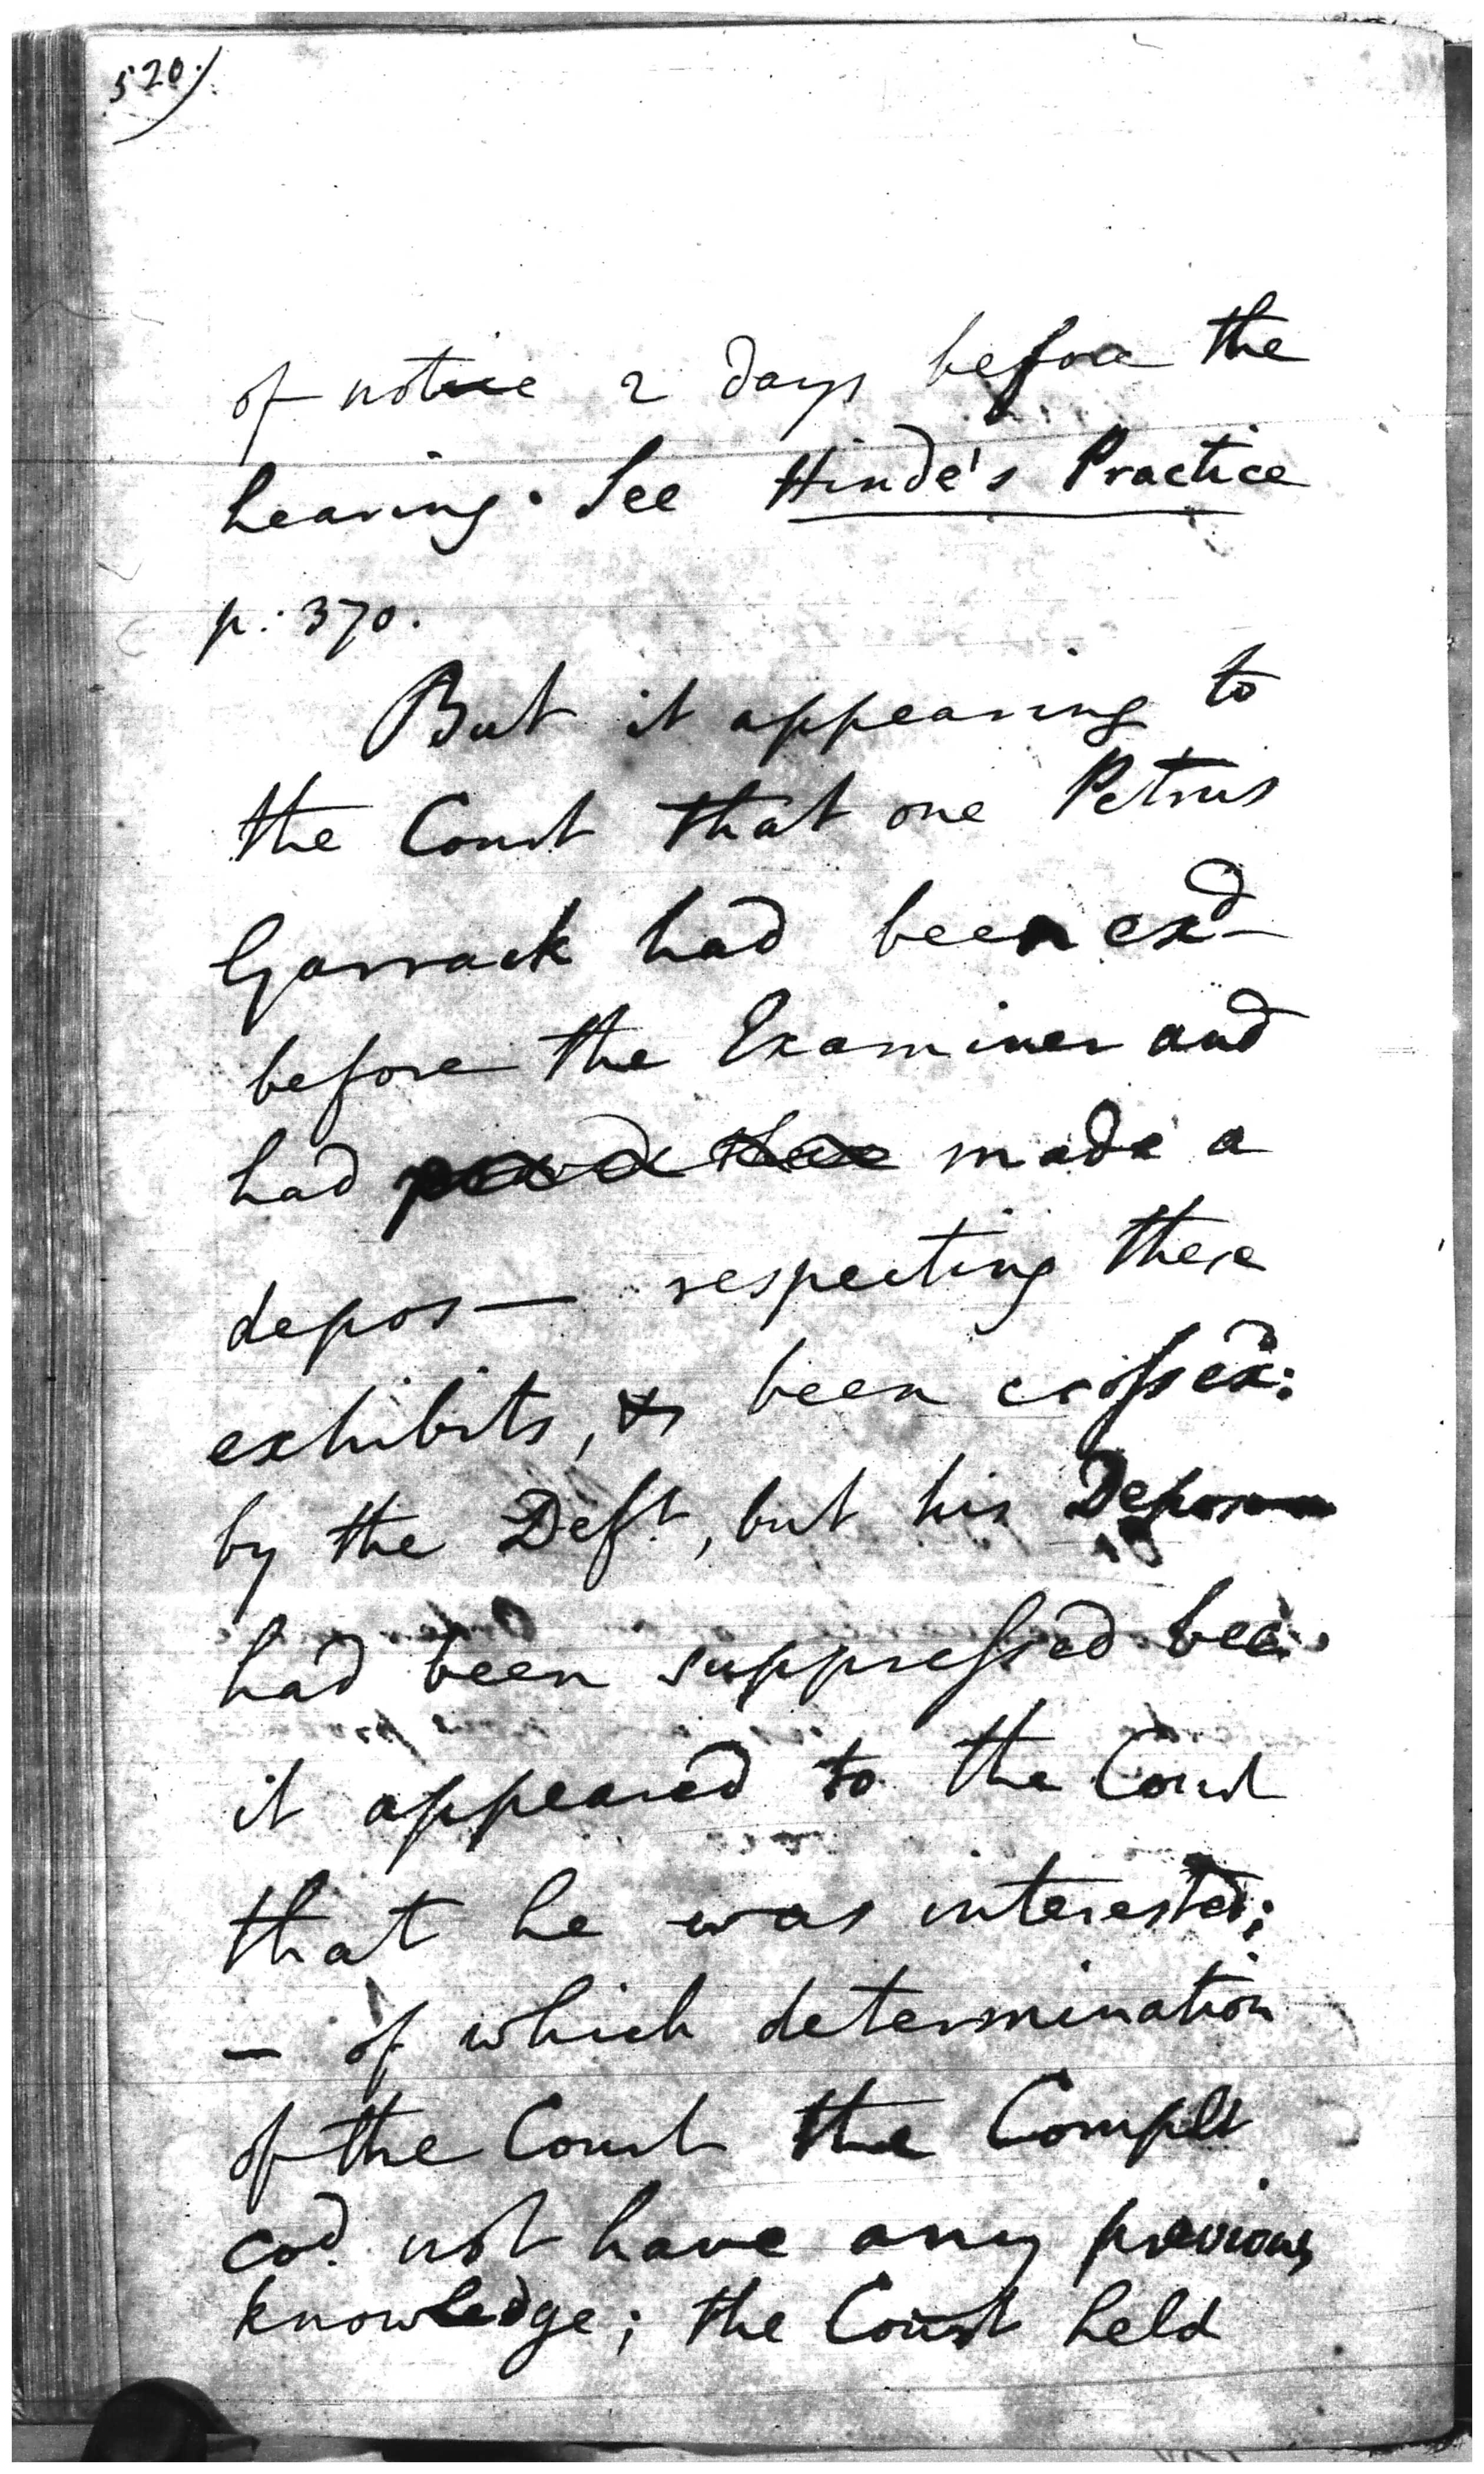 520.
of notice 2 days before the
hearing. See Hinde's Practice
p: 370.
But it appearing to
the Court that one Petrus
Garrack had been exd
before the Examiner and
had made a
depos— respecting these
exhibits, & been cross exd:
by the Deft, but his Depos—
had been suppressed bec:
it appeared to the Court
that he was interested;
— of which determination
of the Court the Complt
cod. not have any previous
knowledge; the Court held